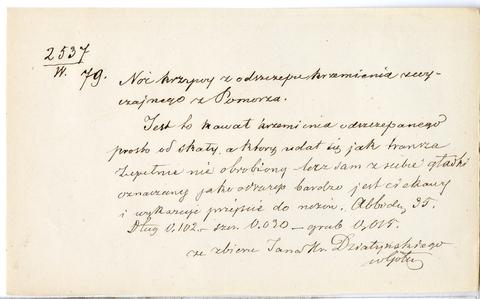 2537
W. 79. Nóż krzywy z odszczepu krzemienia zwy-
czajnego z Pomorza.
Jest to kawał krzemienia odszczepanego
prosto od skały, a który udał się jak
Zupełnie nie obrobiony lecz sam z siebie gładki
oznaczony jako odszczep bardzo jest ciekawy
i wykazuje przejście do nożów. 35.
Dług. 0.102 – szer. 0.030 – grub. 0,015.
ze zbioru Jana Hr. Działyńskiego